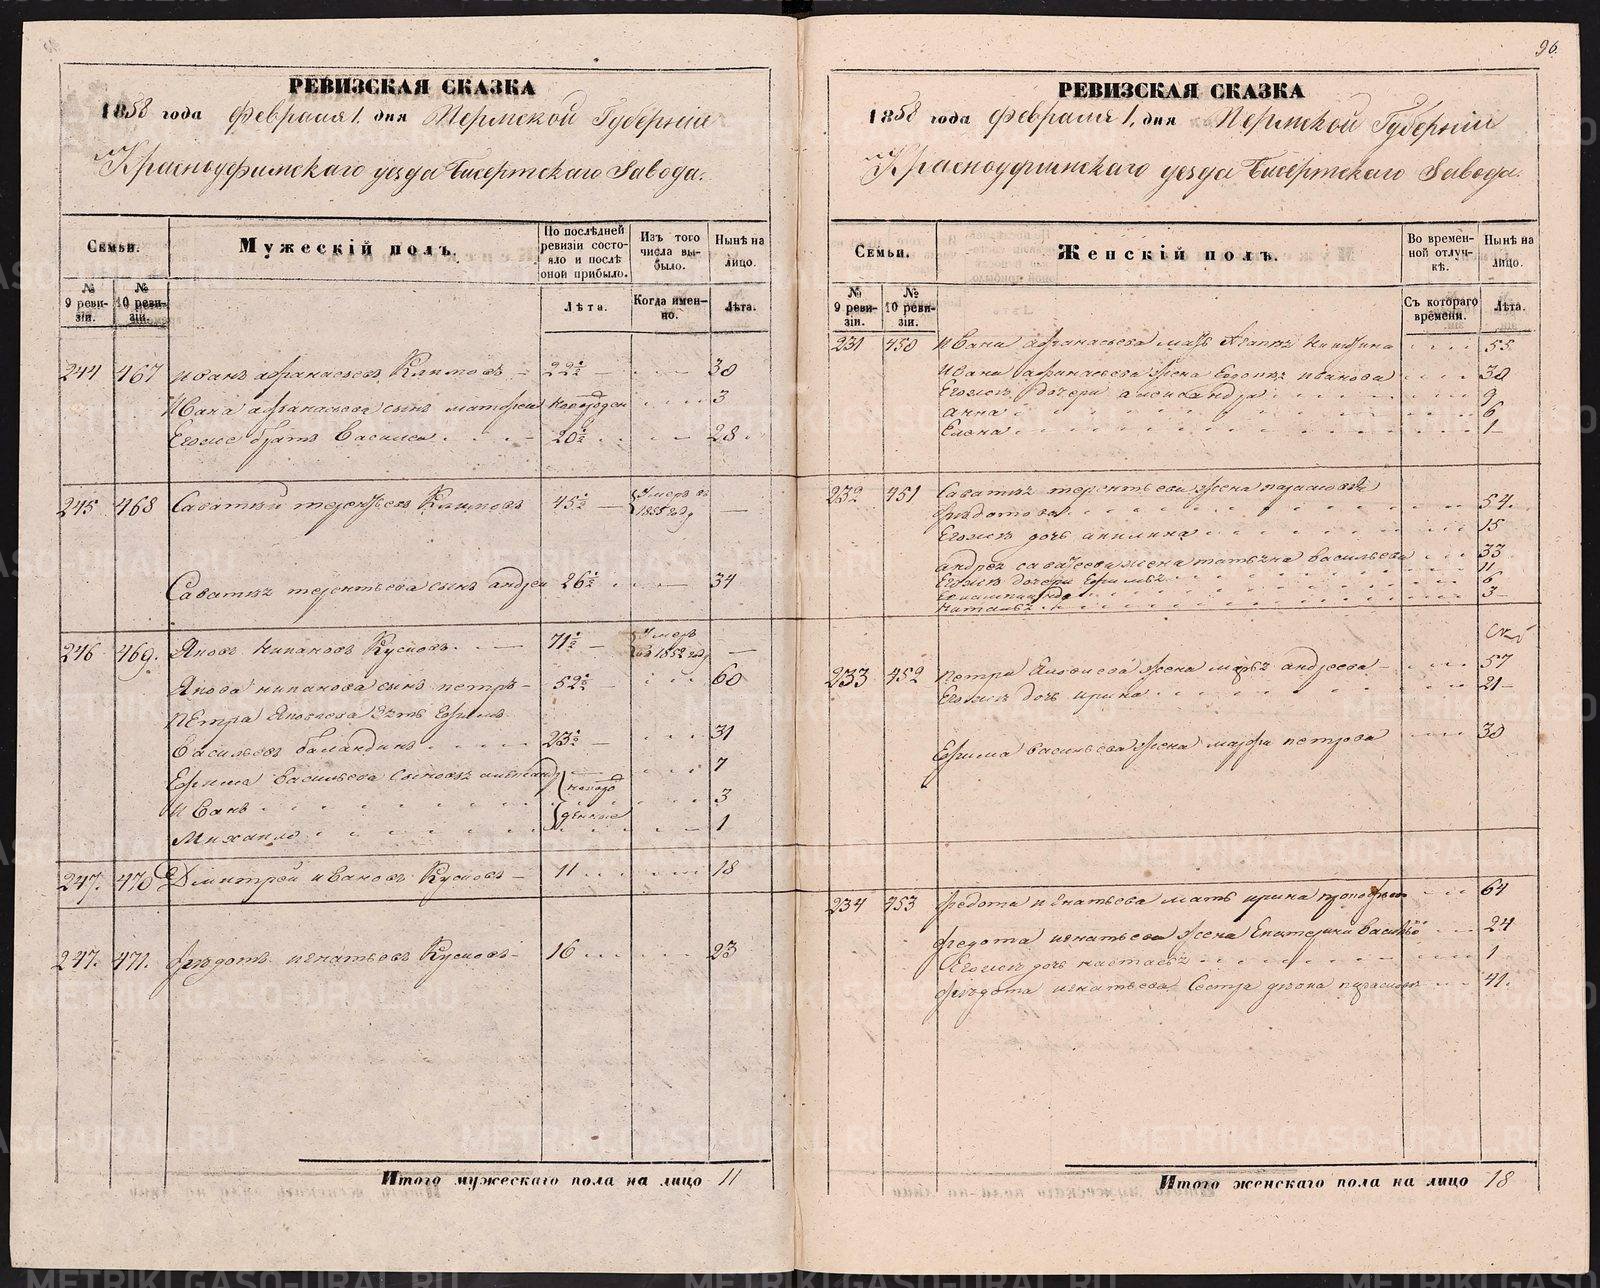 96.
РЕВИЗСКАЯ СКАЗКА
1858 года Февраля 1. дня Пермской Губерніи
Красноуфимскаго уезда Бисертскаго Завода.
Семьи.
Мужескій полъ.
По послѣдней ревизіи состояло и послѣ оной прибыло.
Изъ того числа выбыло.
Нынѣ на лицо.
№ 9 ревизіи.
№ 10 ревизіи.
Лѣта.
Когда именно.
Лѣта.
244 467 Иванъ Афанасьевъ Климовъ 22½ 30
Ивана Афанасьева сынъ Матфей новорожден 3
Его же братъ Василей 20½ 28
245 468 Саватей Терентьевъ Климовъ 45½ Умеръ въ 1855 году —
Саватея Терентьева сынъ Андрей 26½ 34
246 469. Яковъ Кипановъ Кусковъ 71½ Умеръ въ 1852 году —
Якова Кипанова сынъ Петръ 52½ 60
Петра Яковлева зять Ефимъ
Васильевъ Баландинъ 23½ 31
Ефима Васильева сыновья новорожденные 7
Иванъ 3
Михаило 1
247. 470 Дмитрей Ивановъ Кусковъ 11 18
247. 471. Федотъ Игнатьевъ Кусковъ 16 23
Итого мужескаго пола на лицо 11
РЕВИЗСКАЯ СКАЗКА
1858 года Февраля 1. дня Пермской Губерніи
Красноуфимскаго уезда Бисертскаго Завода.
Семьи.
Женскій полъ.
Во временной отлучкѣ.
Нынѣ на лицо.
№ 9 ревизіи.
№ 10 ревизіи.
Съ котораго времени.
Лѣта.
231 450 Ивана Афанасьева мать 55
Ивана Афанасьева жена Евдокія Иванова 30
Его же дочери Александра 9
Анна 6
Елена 1
232 451 Саватея Терентьева жена
Федотова 54.
Его же дочь Акилина 15
Андрея Саватеева жена Татьяна Васильева 33
Его же дочери 11
6
Наталья 3
233 452 Петра Яковлева жена Марья Андреева 57
Его же дочь Ирина 21
Ефима Васильева жена Марфа Петрова 30
234 453 Федота Игнатьева мать Ирина 64
Федота Игнатьева жена Екатерина 24
Его же дочь Настасья 1
Федота Игнатьева Сестра 41.
Итого женскаго пола на лицо 18
METRIKI.GASO-URAL.RU